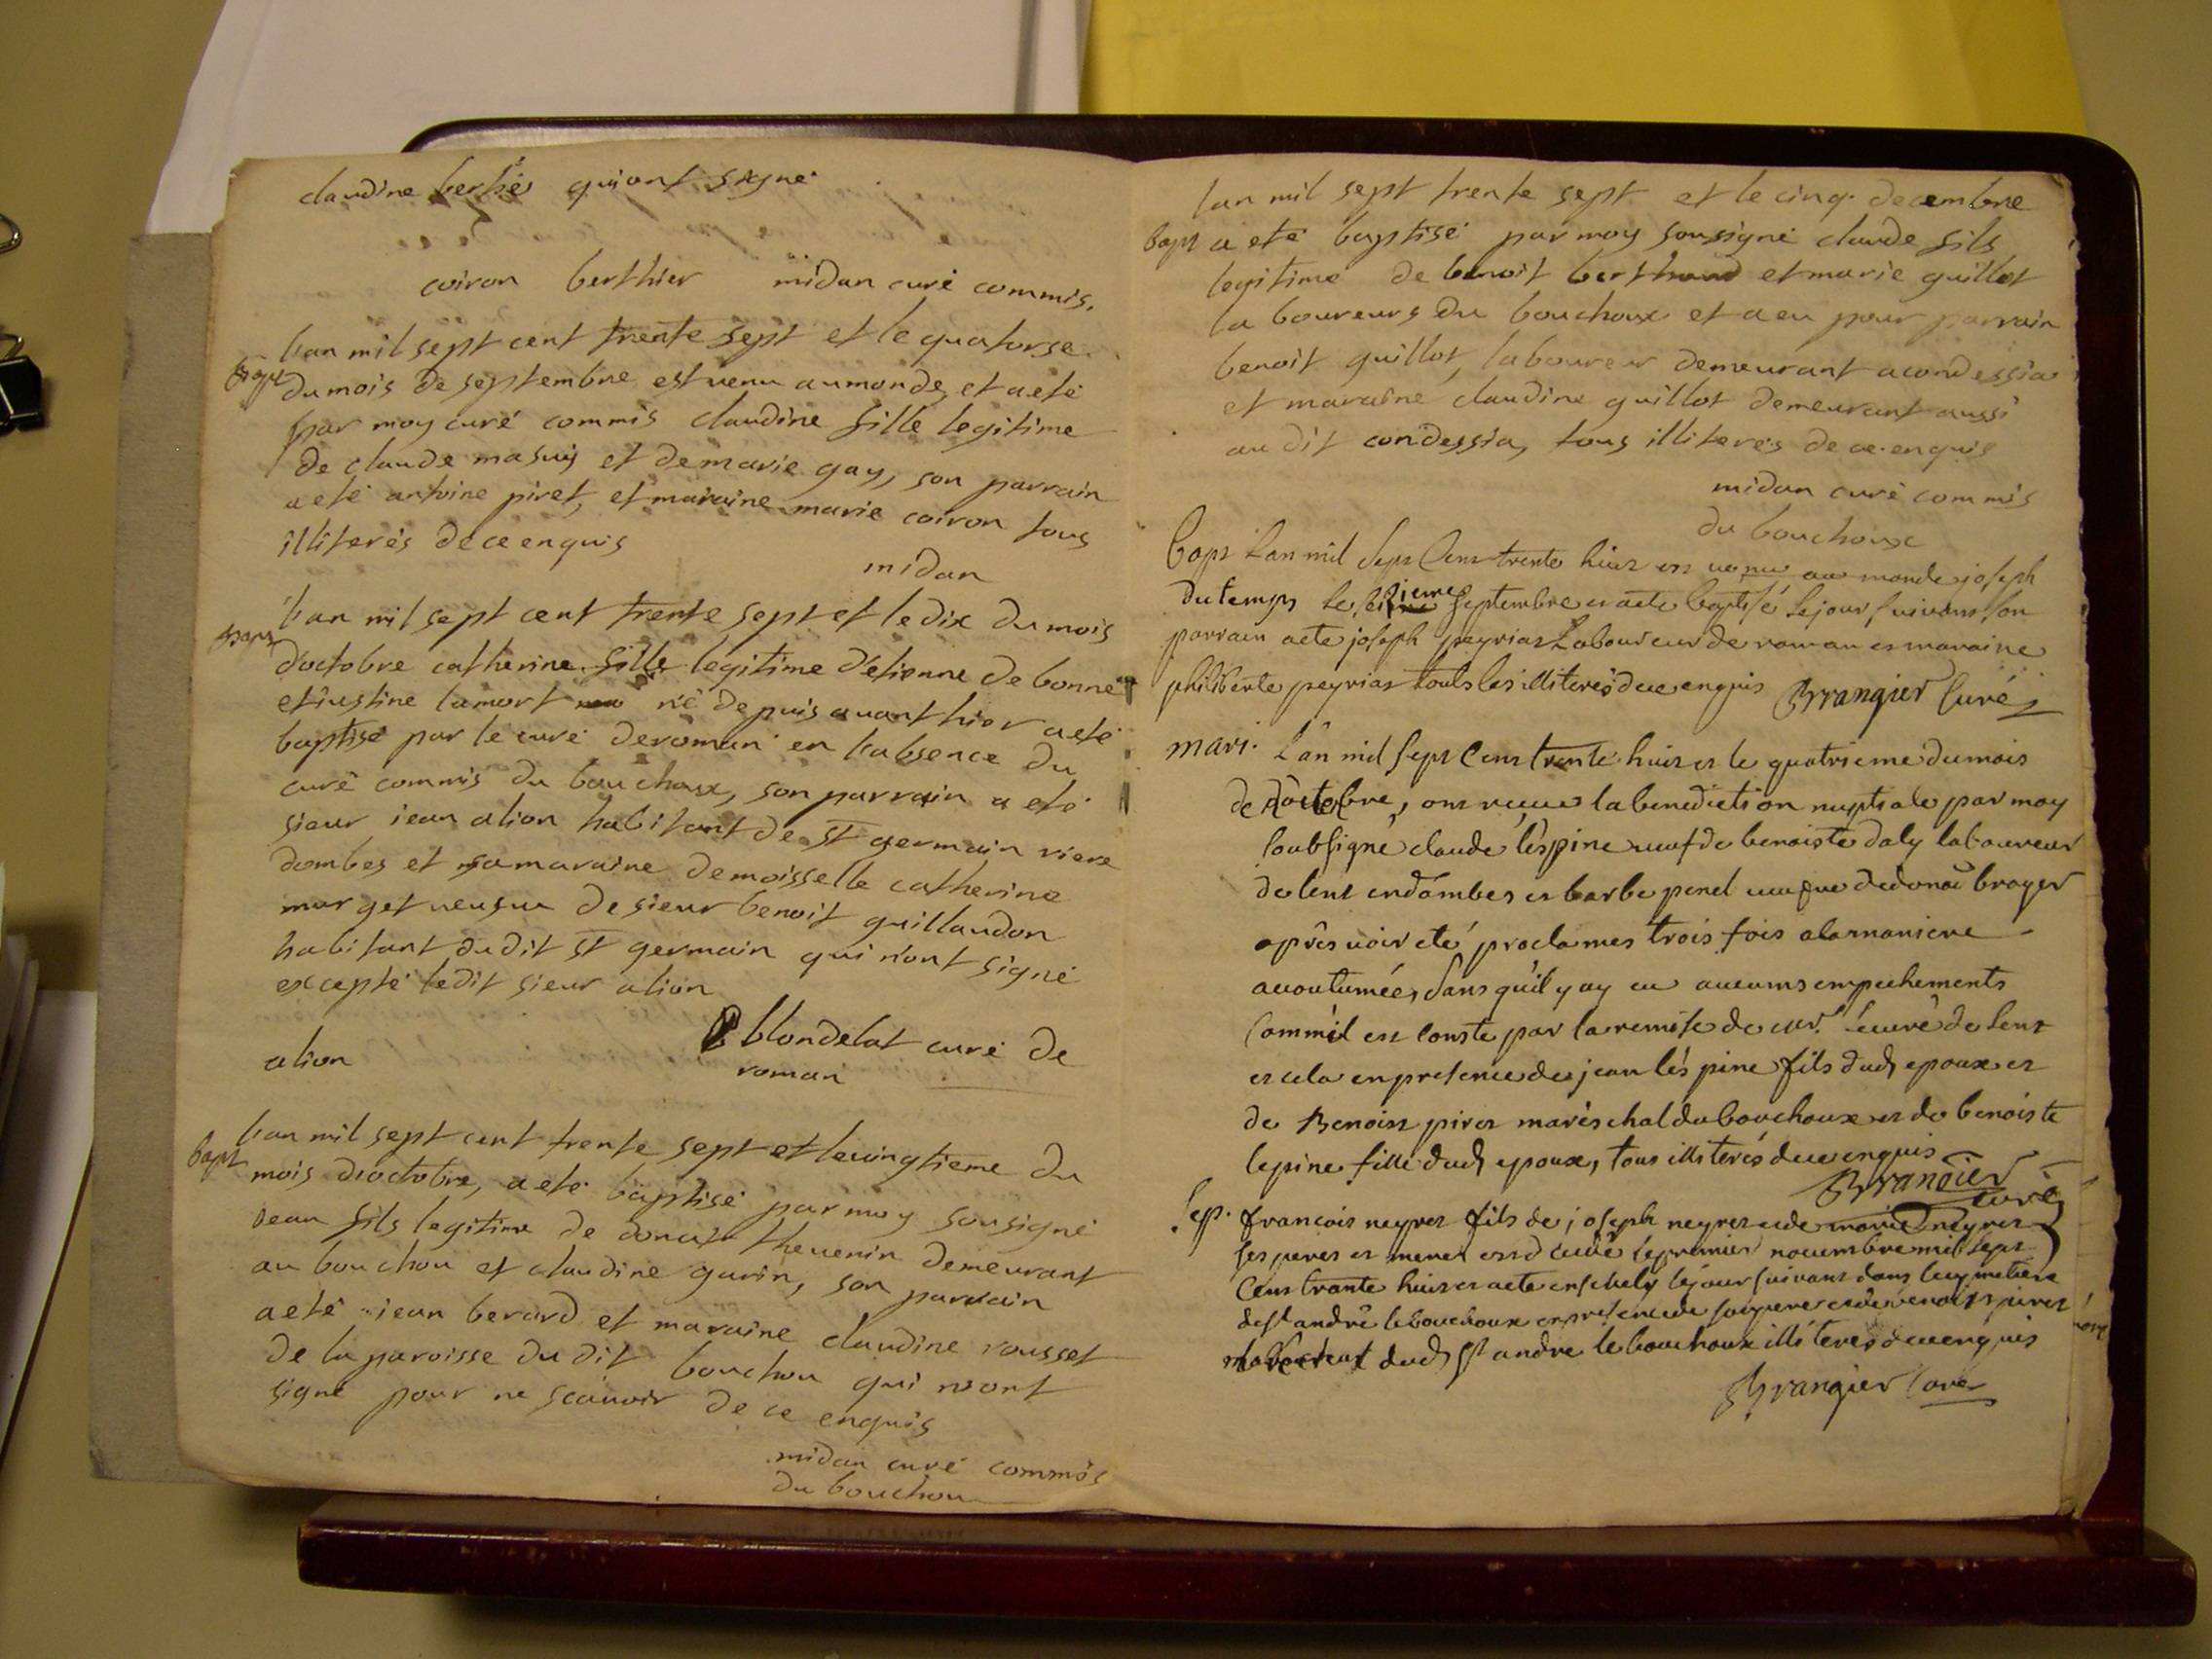 claudine berthe qui ont signé
coiron berthier midan curé commis.
l'an mil sept cent trente sept et le quatorse
bapt du mois de septembre est venu au monde, et a eté
par moy curé commis claudine fille legitime
de claude masuy et de marie gay, son parrain
a eté antoine piret, et maraine marie coiron tous
illiterés de ce enquis
midan
l'an mil sept cent trente sept et le dix du mois
bapt d'octobre catherine fille legitime d'etienne de bonne
et iustine lamort né depuis avant hier a eté
baptisé par le curé de roman en l'absence du
curé commis du bouchoux, son parrain a eté
sieur iean alion habitant de st germain riere
dombes et sa maraine demoisselle catherine
murget veusue de sieur benoit guillaudon
habitant du dit st germain qui n'ont signé
excepté ledit sieur alion
alion blondelat curé de
roman
l'an mil sept cent trente sept et le vingtieme du
bapt mois d'octobre, a eté baptisé par moy sousigné
iean fils legitime de donat thevenin demeurant
au bouchou et claudine gurin, son parrain
a eté iean berard et maraine claudine rousset
de la paroisse du dit bouchou qui n'ont
signé pour ne scauoir de ce enquis
midan curé commis
du bouchou
l'an mil sept trente sept et le cinq decembre
bapt a eté baptisé par moy sousigné claude fils
legitime de benoit berthaud et marie guillot
laboureurs du bouchoux et a eu pour parrain
benoit guillot, laboureur demeurant a condessia
et maraine claudine guillot demeurant aussi
au dit condessia, tous illiterés de ce enquis
midan curé commis
du bouchoux
bapt L'an mil sept cent trente huit est venu au monde joseph
dutemps le septembre et a eté baptisé le jour suivant son
parrain a eté joseph peyrias Laboureur de roman et maraine
philiberte peyrias touts les illiterés de ce enquis Brangier Curé
mari. L'an mil sept cent trente huit et le quatrieme du mois
de doctobre, ont reçue la benediction nuptiale par moy
soubsigné claude l'espine veuf de benoiste daly laboureur
de lent en dombes et barbe penel veufue de donac broyer
après voir eté proclames trois fois a la maniere
acoutumée, sans qu'il y ay eu aucuns empechements
comm'il est conste par la remise de mr. le curé de lent
et cela en presence de jean l'espine fils dud epoux et
de Benoist piret mareschal du bouchoux et de benoiste
lepine fille dud epoux, tous illiterés de ce enquis
Brangier
curé
sep. francois neyret fils de joseph neyret et de marie neyret
ses peres et meres est decedé le premier novembre mil sept
cent trante huit et a eté enseveli le jour suivant dans le cymetiere
de st andré le bouchoux en presence de son pere et de benoist piret
dud st andre le bouchoux illiteres de ce enquis
Brangier curé